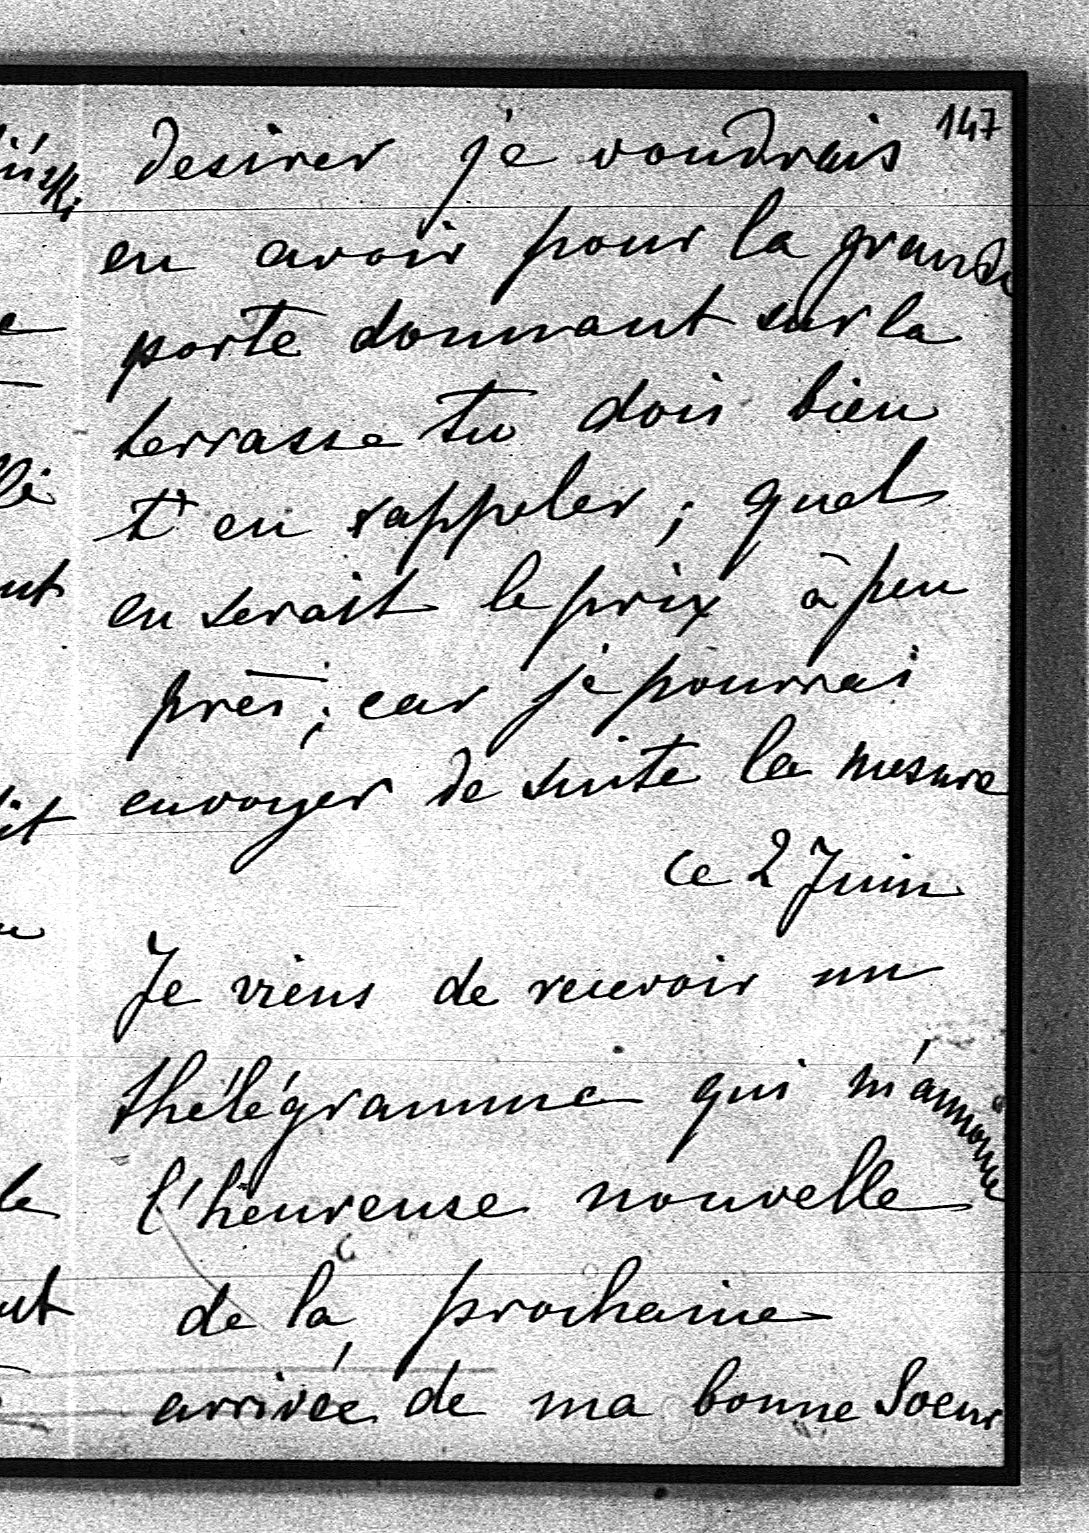 147
desirer je voudrais
en avoir pour la grande
porte donnant sur la
terrasse tu dois bien
t'en rappeler ; quel
en serait le prix à peu
près ; car je pourrai
envoyer de suite la mesure
ce 2 Juin
Je viens de recevoir un
thélégramme qui m'annonce
l'heureuse nouvelle
de la prochaine
arrivée de ma bonne Soeur